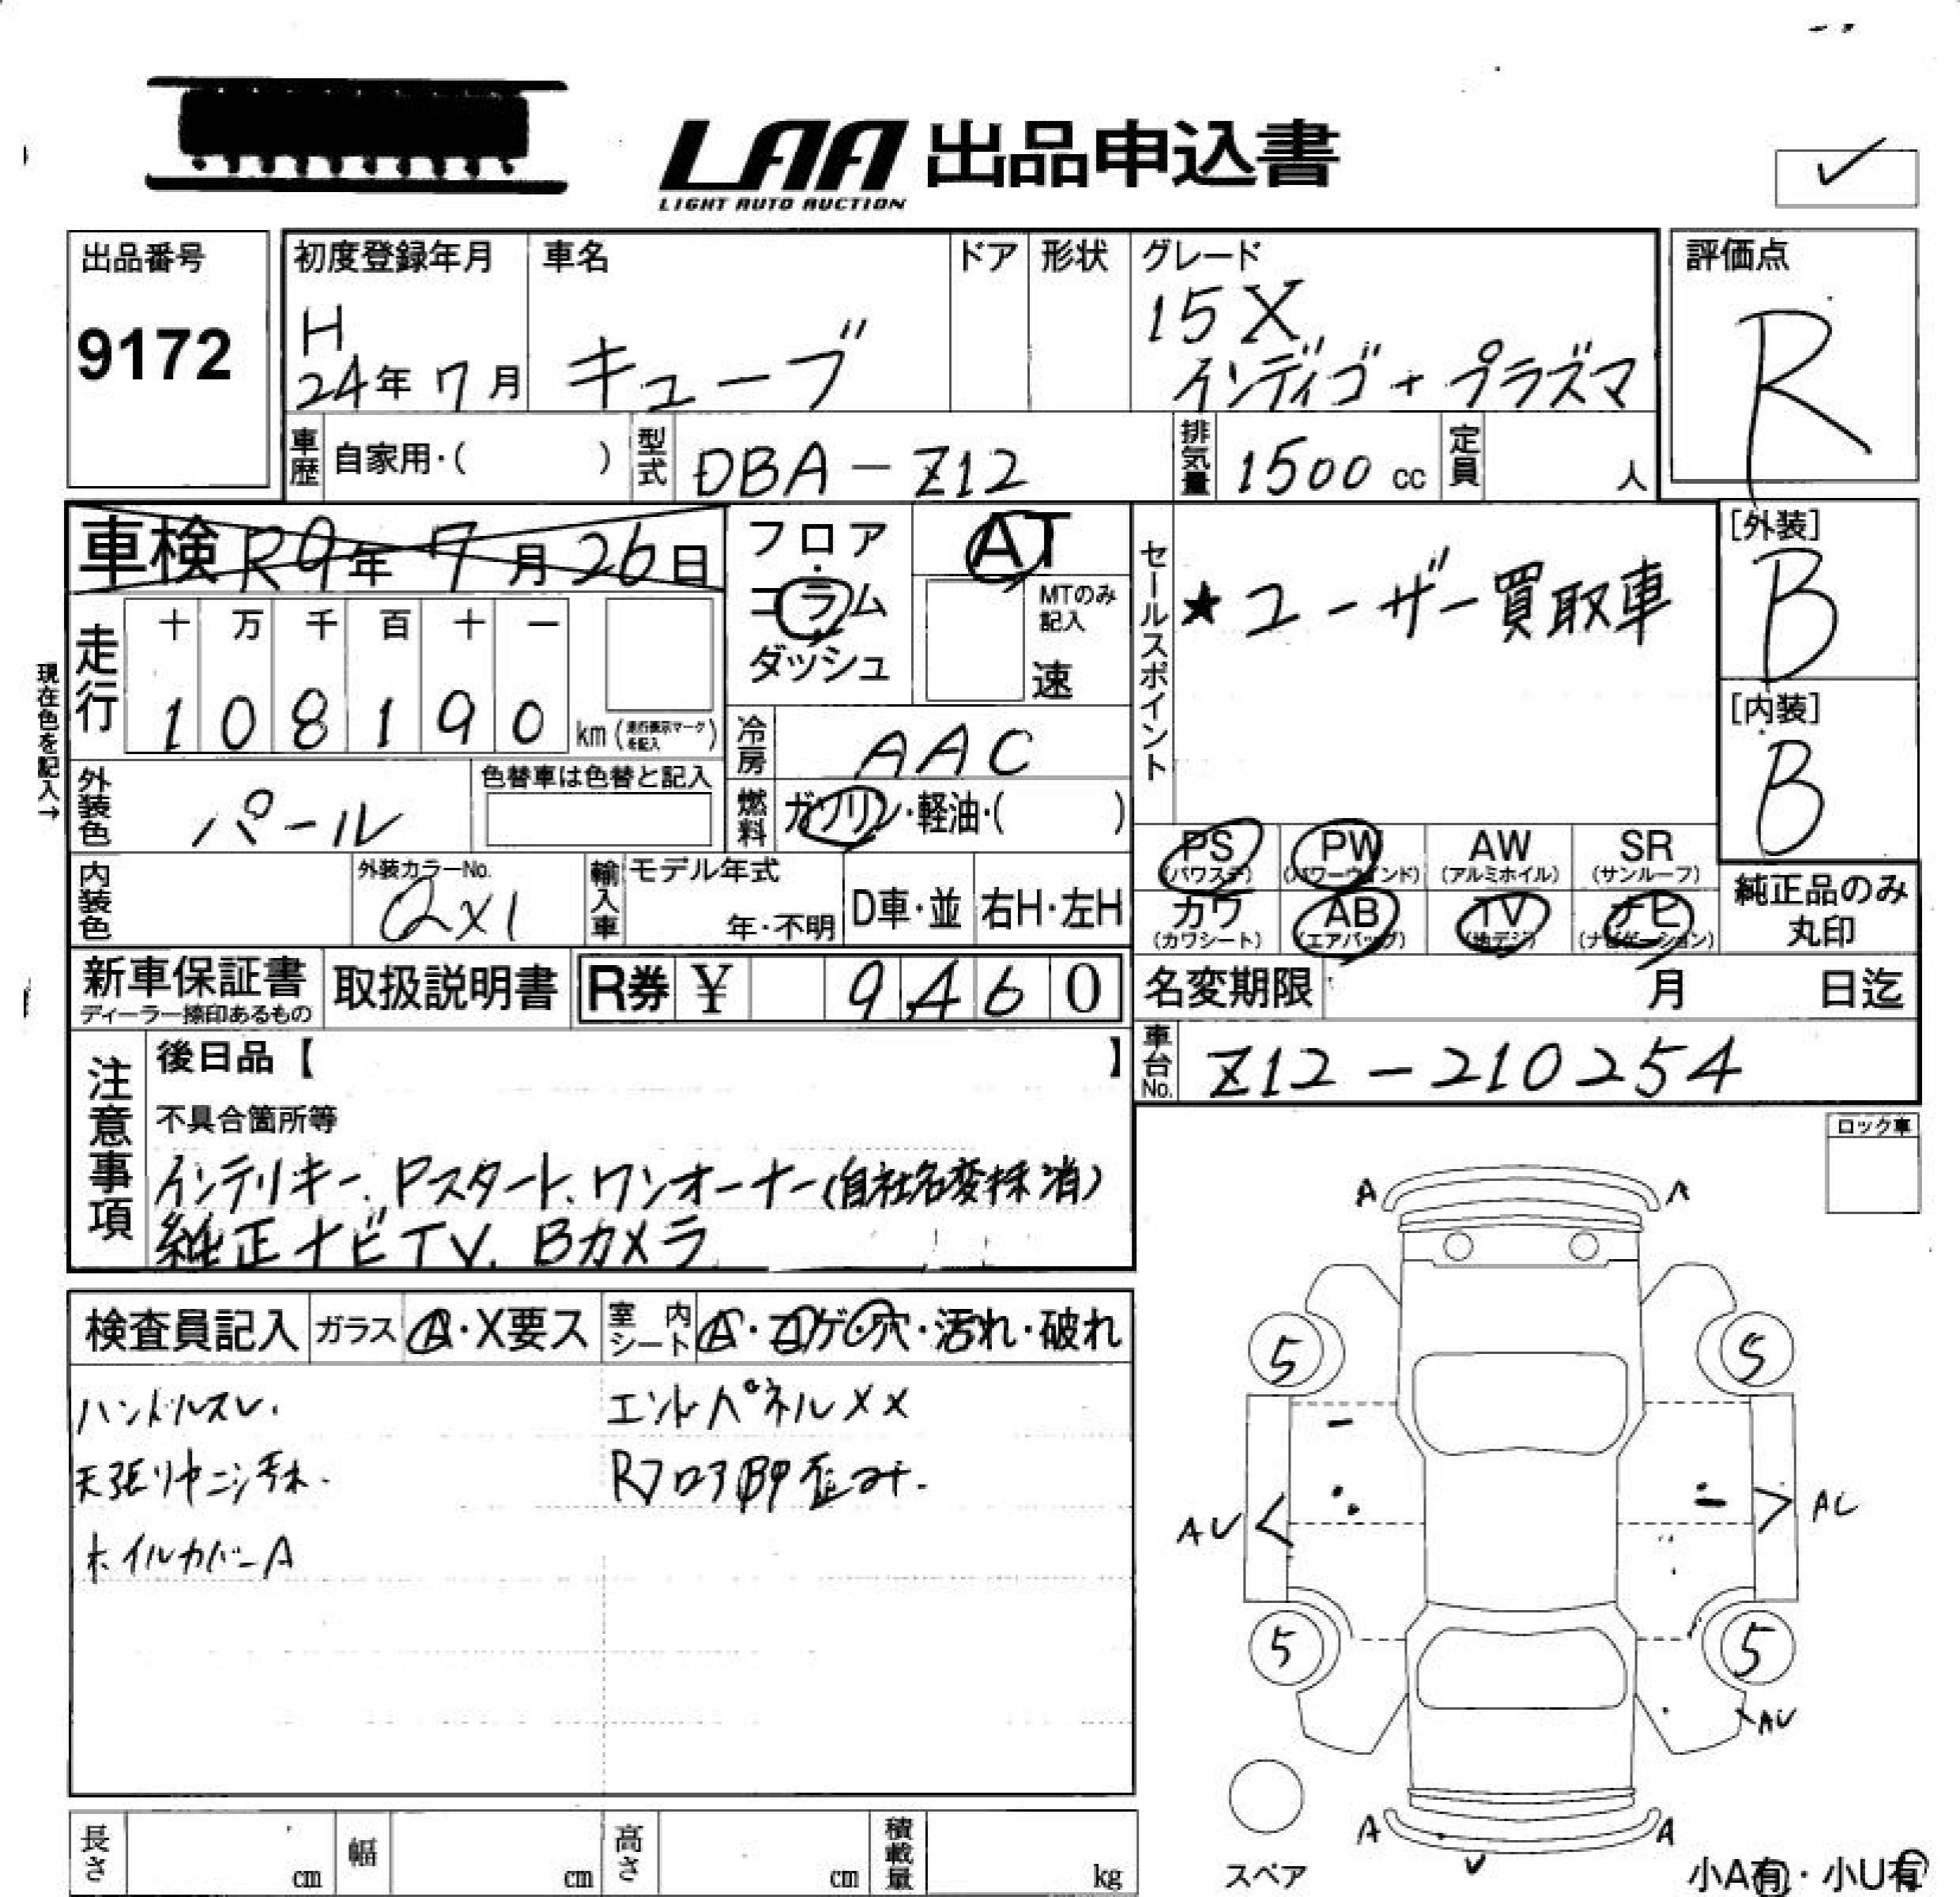 LAA 出品申込書
LIGHT AUTO AUCTION
✓
出品番号
9172
初度登録年月
H
24年 7月
車名
キューブ
ドア
形状
グレード
15X
インディゴ+プラズマ
評価点
R
車歴 自家用・( )
型式 DBA-Z12
排気量 1500 cc
定員 人
車検 R9年 7月 26日
フロア
コラム
ダッシュ
AT
MTのみ
記入
速
セールスポイント
★ユーザー買取車
[外装]
B
[内装]
B
現在色を記入→
走行
十 万 千 百 十 一
1 0 8 1 9 0 km (走行表示マークを記入)
冷房 AAC
外装色 パール
色替車は色替と記入
燃料 ガソリン・軽油・( )
PS (パワステ)
PW (パワーウインド)
AW (アルミホイル)
SR (サンルーフ)
カワ (カワシート)
AB (エアバッグ)
TV (地デジ)
ナビ (ナビゲーション)
純正品のみ
丸印
内装色
外装カラーNo.
QX1
輸入車
モデル年式
年・不明
D車・並
右H・左H
新車保証書
ディーラー捺印あるもの
取扱説明書
R券 ¥ 9460
名変期限 月 日迄
車台No. Z12-210254
注意事項
後日品【 】
不具合箇所等
インテリキー、Pスタート、ワンオーナー(自社名変抹消)
純正ナビTV、Bカメラ
ロック車
検査員記入
ガラス A・X要ス
室内シート A・コゲ・穴・汚れ・破れ
ハンドルスレ.
天張リヤニ汚れ.
ホイルカバーA
エンドパネルXX
Rフロア凹歪み.
A A
5 5
AU AU
5 5
AU
A A
U
スペア
小A有・小U有
長さ cm
幅 cm
高さ cm
積載量 kg